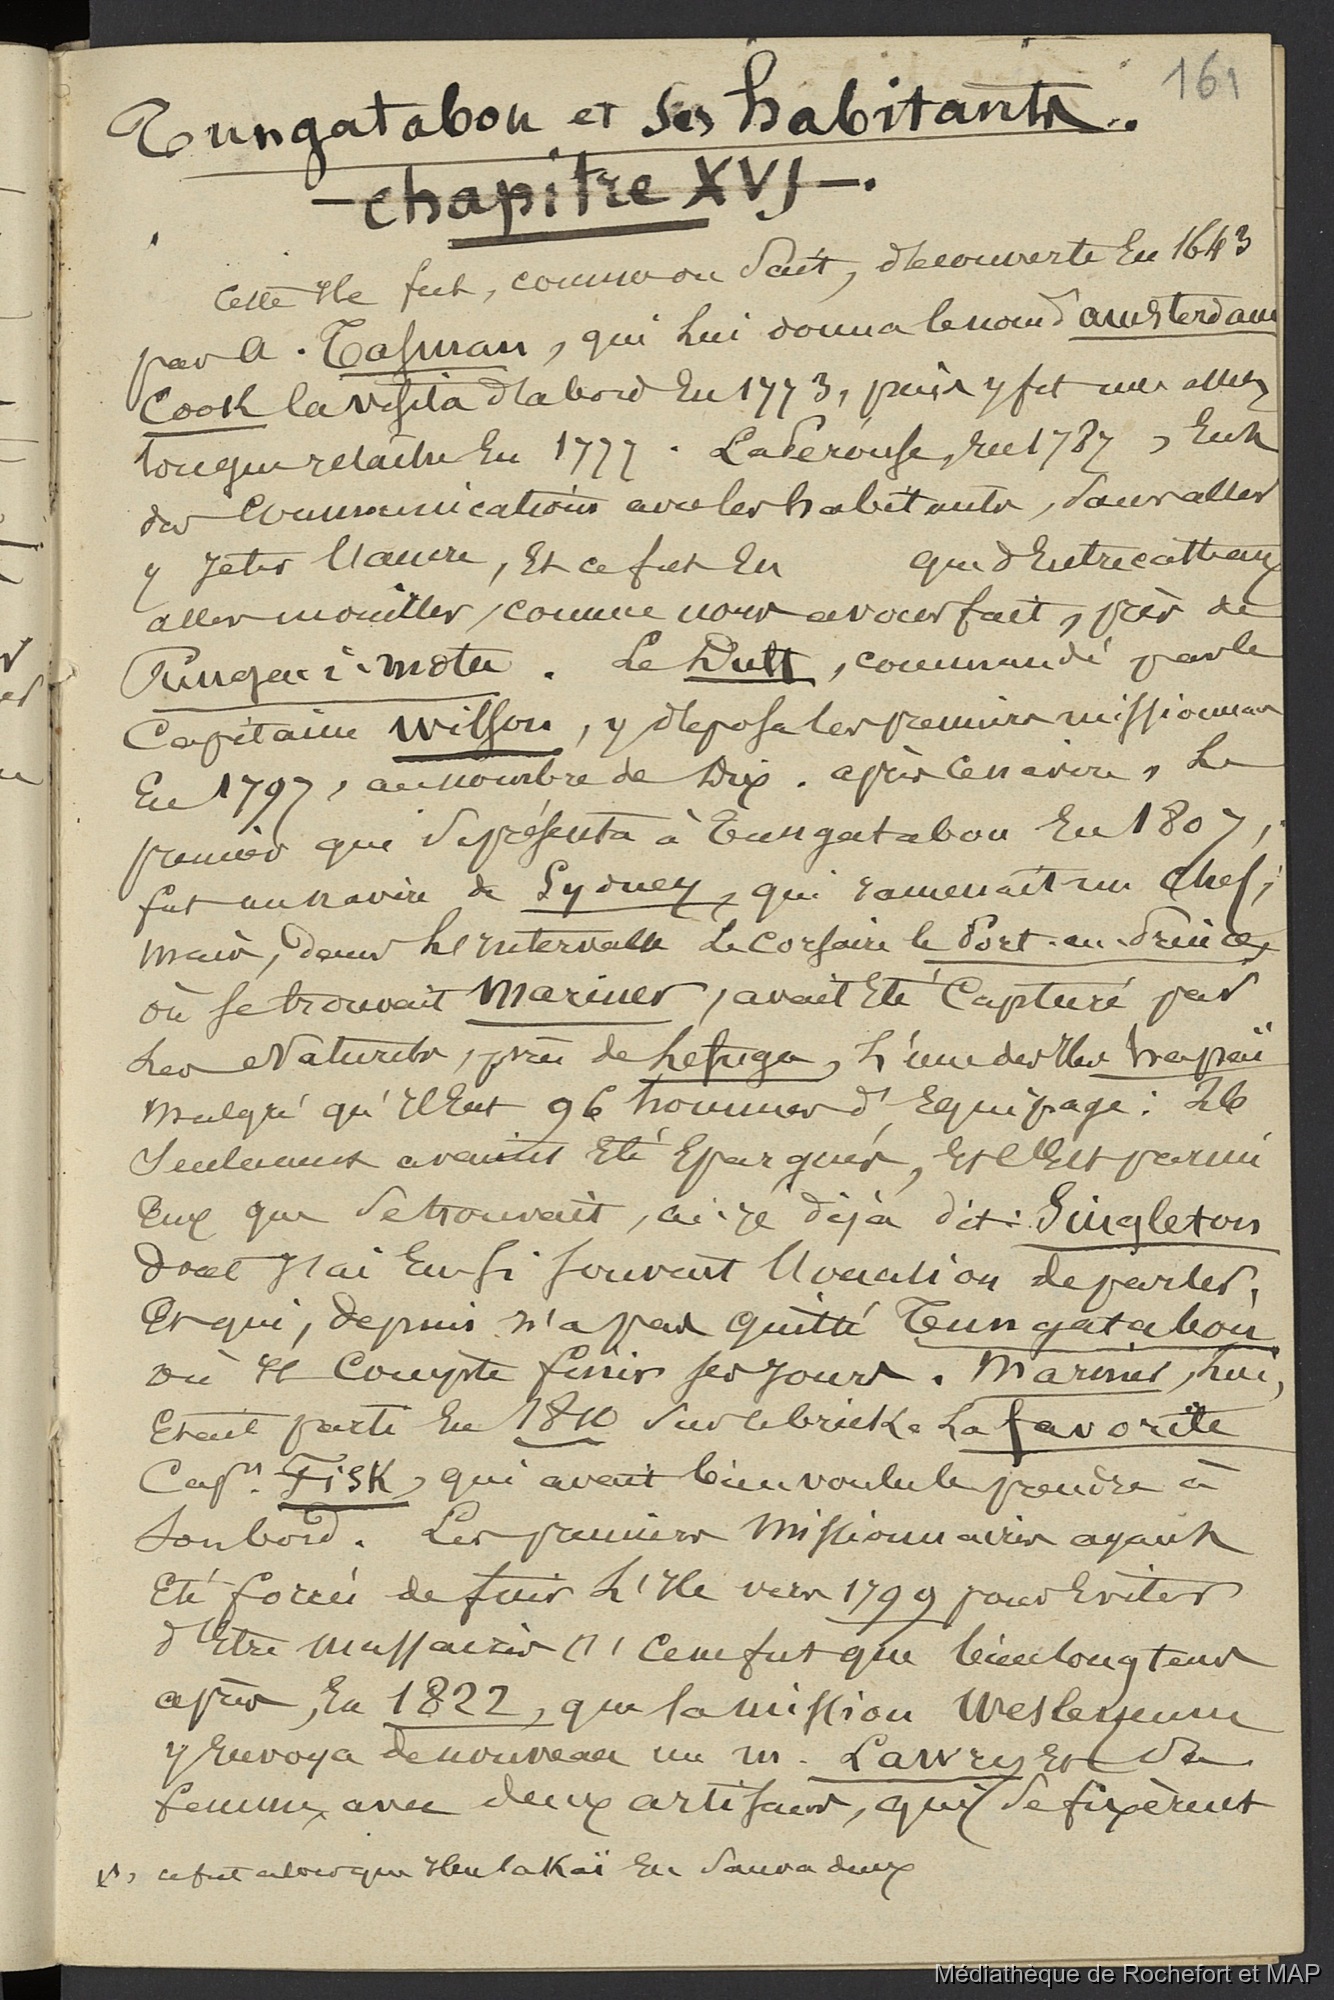 161
Tungatabou et ses habitants.
— chapitre XVI —.
Cette Ile fut, comme on sait, découverte En 1643
par A. Tasman, qui lui donna le nom d'amsterdam
Cook la visita d'abord En 1773, puis y fit une assez
longue relâche En 1777. LaPérouse, en 1787, Eut
des Communications avec les habitants, sans aller
y jeter l'ancre, Et ce fut En que d'Entrecasteaux
alla mouiller, comme nous avons fait, près de
Pangaï-motu. Le Duff, commandé par le
Capitaine Wilson, y déposa les premiers missionnaires
En 1797, au nombre de Dix. après ce navire, Le
premier qui se présenta à Tungatabou En 1807,
fut un navire de Sydney, qui ramenait un Chef;
mais, dans l'Intervalle Le corsaire le Port-au-Prince,
où se trouvait Mariner, avait Eté Capturé par
Les Naturels, près de Lefuga, L'une des Iles Hapaï
Malgré qu'Il Eut 96 hommes d'Equipage: 26
Seulement avaient Eté Epargnés, Et c'Est parmi
Eux que se trouvait, ai-je déjà dit: Singleton
Dont J'ai Eu si souvent l'occasion de parler,
Et qui, depuis n'a pas quitté Tungatabou
où Il Compte finir ses jours. Mariner, lui,
Etait parti En 1810 sur le brick La favorite
Capn. Fisk, qui avait bien voulu le prendre à
Son bord. Les premiers Missionnaires ayant
Eté forcés de fuir L'Ile vers 1799 pour Eviter
d'Etre massacrés (1) ce ne fut que bien longtems
après, En 1822, que la mission Wesleyenne
y Envoya de nouveau un m. Lawry Et Sa
femme, avec deux artisans, qui se fixèrent
(1), ce fut alors que tulakaï En sauva deux
Médiathèque de Rochefort et MAP